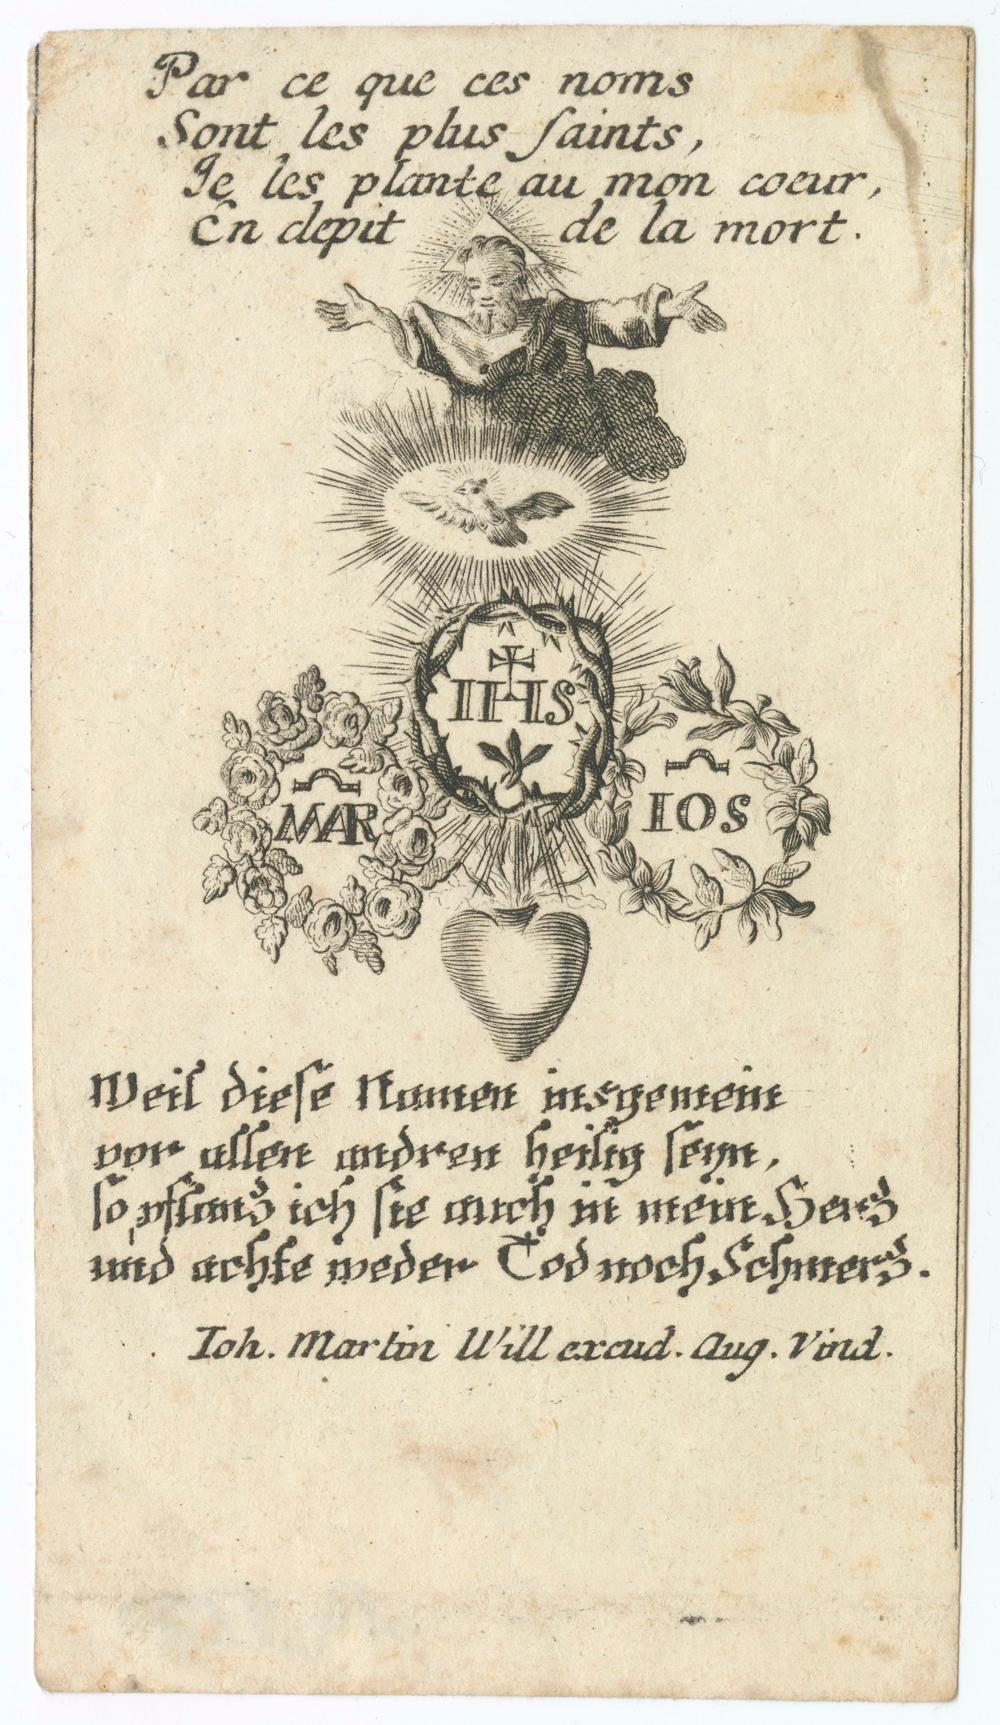 Par ce que ces noms
Sont les plus ſaints,
Je les plante au mon coeur,
En depit de la mort.
IHS
MAR
IOS
Weil dieſe Namen insgemein
vor allen andren heilig ſeyn,
ſo pflanz ich ſie auch in mein Herz
und achte weder Tod noch Schmerz.
Ioh. Martin Will excud. Aug. Vind.